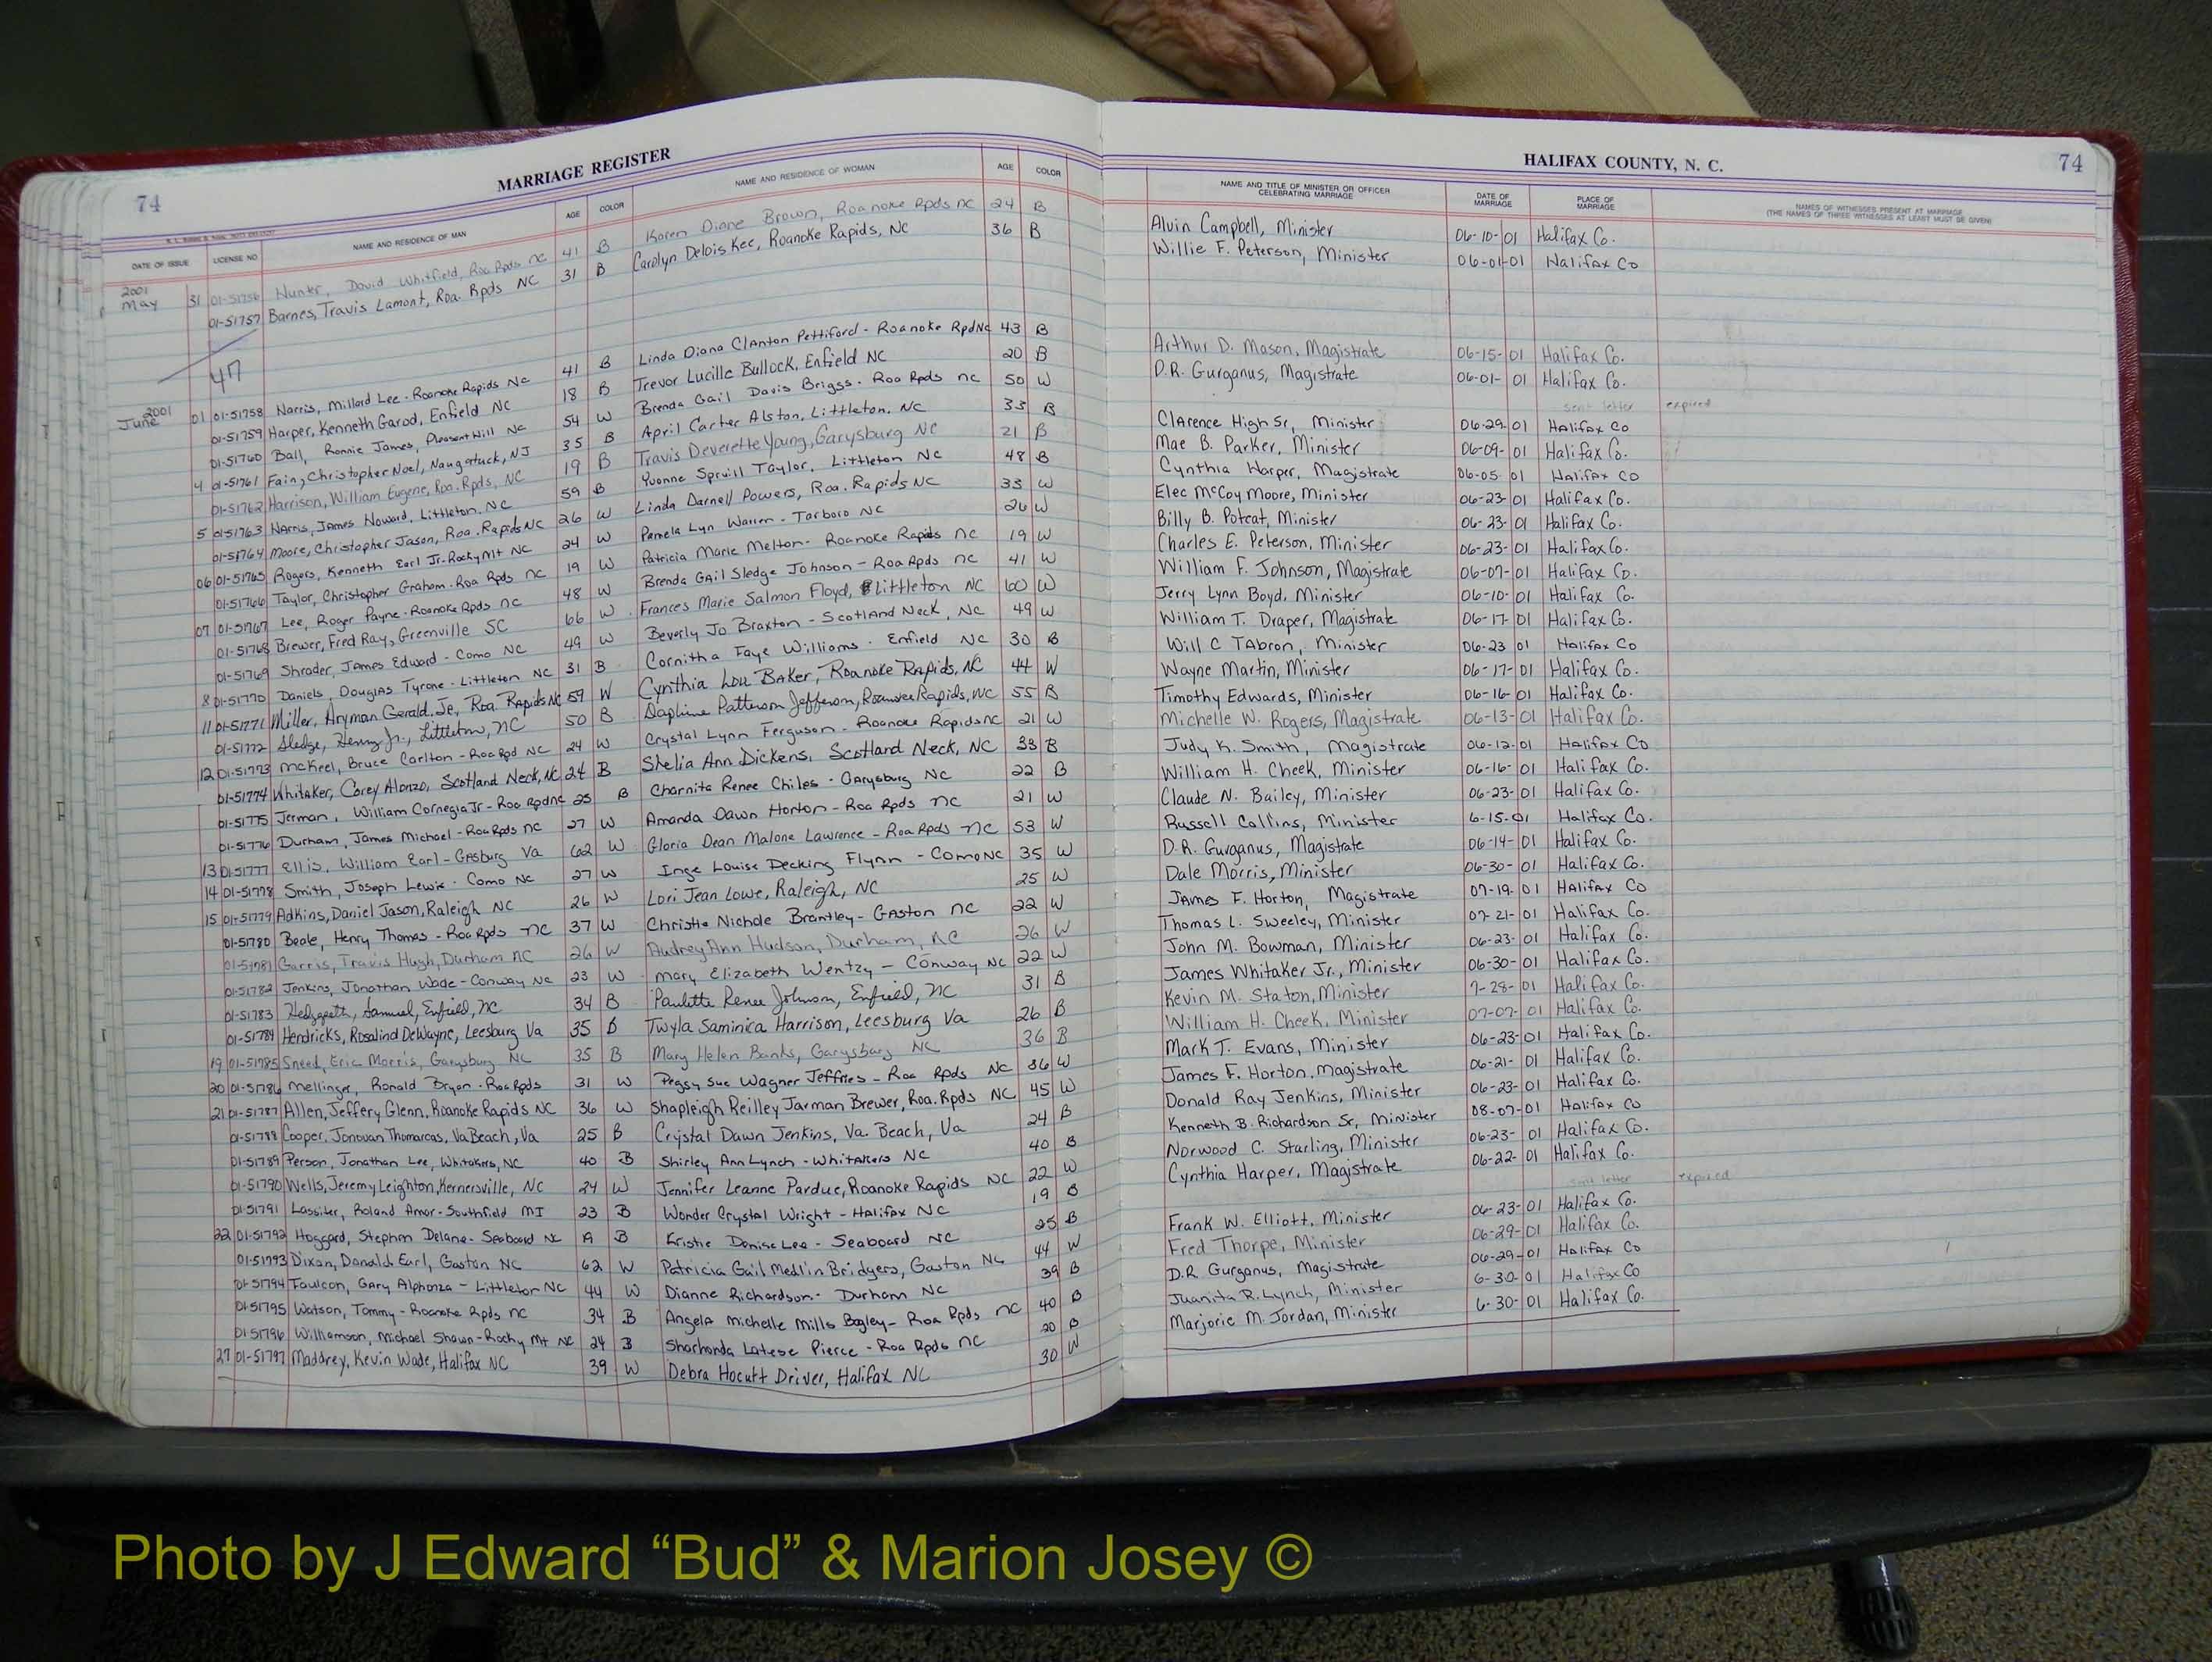 74 MARRIAGE REGISTER
DATE OF ISSUE LICENSE NO NAME AND RESIDENCE OF MAN AGE COLOR NAME AND RESIDENCE OF WOMAN AGE COLOR
2001
May 31 01-51756 Hunter, David Whitfield, Roa Rpds NC 41 B Karen Diane Brown, Roanoke Rpds NC 24 B
01-51757 Barnes, Travis Lamont, Roa. Rpds NC 31 B Carolyn Delois Kee, Roanoke Rapids, NC 36 B
47
2001
June 01 01-51758 Harris, Millard Lee - Roanoke Rapids NC 41 B Linda Diana Clanton Pettiford - Roanoke Rpd NC 43 B
01-51759 Harper, Kenneth Garod, Enfield NC 18 B Trevor Lucille Bullock, Enfield NC 20 B
01-51760 Ball, Ronnie James, Pleasant Hill NC 54 W Brenda Gail Davis Briggs - Roa Rpds NC 50 W
4 01-51761 Fain, Christopher Noel, Naugartuck, NJ 35 B April Carter Alston, Littleton, NC 33 B
01-51762 Harrison, William Eugene, Roa. Rpds, NC 19 B Travis Deverette Young, Garysburg NC 21 B
5 01-51763 Harris, James Howard, Littleton, NC 59 B Yvonne Spruill Taylor, Littleton NC 48 B
01-51764 Moore, Christopher Jason, Roa. Rapids NC 26 W Linda Darnell Powers, Roa. Rapids NC 33 W
06 01-51765 Rogers, Kenneth Earl Jr - Rocky Mt NC 24 W Pamela Lyn Warren - Tarboro NC 26 W
01-51766 Taylor, Christopher Graham - Roa Rpds NC 19 W Patricia Marie Melton - Roanoke Rapids NC 19 W
07 01-51767 Lee, Roger Payne - Roanoke Rpds NC 48 W Brenda Gail Sledge Johnson - Roa Rpds NC 41 W
01-51768 Brewer, Fred Ray, Greenville SC 66 W Frances Marie Salmon Floyd, Littleton NC 60 W
01-51769 Shrader, James Edward - Como NC 49 W Beverly Jo Braxton - Scotland Neck, NC 49 W
8 01-51770 Daniels, Douglas Tyrone - Littleton NC 31 B Cornitha Faye Williams - Enfield NC 30 B
11 01-51771 Miller, Hryman Gerald, Jr, Roa. Rapids NC 59 W Cynthia Lou Baker, Roanoke Rapids, NC 44 W
01-51772 Sledge, Henry Jr., Littleton, NC 50 B Daphine Patterson Jefferson, Roanoke Rapids, NC 55 B
12 01-51773 McKeel, Bruce Carlton - Roa Rpd NC 24 W Crystal Lynn Ferguson - Roanoke Rapids NC 21 W
01-51774 Whitaker, Corey Alonzo, Scotland Neck, NC 24 B Shelia Ann Dickens, Scotland Neck, NC 33 B
01-51775 Jerman, William Cornegia Jr - Roa Rpd NC 25 B Charnita Renee Chiles - Garysburg NC 22 B
01-51776 Durham, James Michael - Roa Rpds NC 27 W Amanda Dawn Horton - Roa Rpds NC 21 W
13 01-51777 Ellis, William Earl - Gasburg Va 62 W Gloria Dean Malone Lawrence - Roa Rpds NC 53 W
14 01-51778 Smith, Joseph Lewis - Como NC 27 W Inge Louise Decking Flynn - Como NC 35 W
15 01-51779 Adkins, Daniel Jason, Raleigh NC 26 W Lori Jean Lowe, Raleigh, NC 25 W
01-51780 Beale, Henry Thomas - Roa Rpds NC 37 W Christie Nichole Brantley - Gaston NC 22 W
01-51781 Garris, Travis Hugh, Durham NC 26 W Audrey Ann Hudson, Durham, NC 26 W
01-51782 Jenkins, Jonathan Wade - Conway NC 23 W Mary Elizabeth Wentzy - Conway NC 22 W
01-51783 Hedgpeth, Samuel, Enfield, NC 34 B Paulette Renee Johnson, Enfield, NC 31 B
01-51784 Hendricks, Rosalind DeWayne, Leesburg Va 35 B Twyla Saminica Harrison, Leesburg Va 26 B
19 01-51785 Sneed, Eric Morris, Garysburg NC 35 B Mary Helen Banks, Garysburg NC 36 B
20 01-51786 Mellinger, Ronald Bryan - Roa Rpds 31 W Peggy Sue Wagner Jeffries - Roa Rpds NC 36 W
21 01-51787 Allen, Jeffery Glenn, Roanoke Rapids NC 36 W Shapleigh Reilley Jarman Brewer, Roa. Rpds NC 45 W
01-51788 Cooper, Jonovan Thomarcas, Va Beach, Va 25 B Crystal Dawn Jenkins, Va. Beach, Va 24 B
01-51789 Person, Jonathan Lee, Whitakers, NC 40 B Shirley Ann Lynch - Whitakers NC 40 B
01-51790 Wells, Jeremy Leighton, Kernersville, NC 24 W Jennifer Leanne Pardue, Roanoke Rapids NC 22 W
01-51791 Lassiter, Roland Amor - Southfield MI 23 B Wonder Crystal Wright - Halifax NC 19 B
22 01-51792 Hoggard, Stephen Delane - Seaboard NC 19 B Kristie Denise Lee - Seaboard NC 25 B
01-51793 Dixon, Donald Earl, Gaston NC 62 W Patricia Gail Medlin Bridgers, Gaston NC 44 W
01-51794 Faulcon, Gary Alphonza - Littleton NC 44 W Dianne Richardson - Durham NC 39 B
01-51795 Watson, Tommy - Roanoke Rpds NC 34 B Angela Michelle Mills Bagley - Roa Rpds NC 40 B
01-51796 Williamson, Michael Shawn - Rocky Mt NC 24 B Sharhonda Latese Pierce - Roa Rpds NC 20 B
27 01-51797 Maddrey, Kevin Wade, Halifax NC 39 W Debra Hocutt Driver, Halifax NC 30 W
HALIFAX COUNTY, N. C. 74
NAME AND TITLE OF MINISTER OR OFFICER CELEBRATING MARRIAGE DATE OF MARRIAGE PLACE OF MARRIAGE NAMES OF WITNESSES PRESENT AT MARRIAGE
(THE NAMES OF THREE WITNESSES AT LEAST MUST BE GIVEN)
Alvin Campbell, Minister 06-10-01 Halifax Co.
Willie F. Peterson, Minister 06-01-01 Halifax Co
Arthur D. Mason, Magistrate 06-15-01 Halifax Co.
D.R. Gurganus, Magistrate 06-01-01 Halifax Co.
sent letter expired
Clarence High Sr, Minister 06-29-01 Halifax Co
Mae B. Parker, Minister 06-09-01 Halifax Co.
Cynthia Harper, Magistrate 06-05-01 Halifax Co
Elec McCoy Moore, Minister 06-23-01 Halifax Co.
Billy B. Poteat, Minister 06-23-01 Halifax Co.
Charles E. Peterson, Minister 06-23-01 Halifax Co.
William F. Johnson, Magistrate 06-07-01 Halifax Co.
Jerry Lynn Boyd, Minister 06-10-01 Halifax Co.
William T. Draper, Magistrate 06-17-01 Halifax Co.
Will C Tabron, Minister 06-23 01 Halifax Co
Wayne Martin, Minister 06-17-01 Halifax Co.
Timothy Edwards, Minister 06-16-01 Halifax Co.
Michelle W. Rogers, Magistrate 06-13-01 Halifax Co.
Judy K. Smith, Magistrate 06-12-01 Halifax Co
William H. Cheek, Minister 06-16-01 Halifax Co.
Claude N. Bailey, Minister 06-23-01 Halifax Co.
Russell Collins, Minister 6-15-01 Halifax Co.
D.R. Gurganus, Magistrate 06-14-01 Halifax Co.
Dale Morris, Minister 06-30-01 Halifax Co.
James F. Horton, Magistrate 07-19-01 Halifax Co
Thomas L. Sweeley, Minister 07-21-01 Halifax Co.
John M. Bowman, Minister 06-23-01 Halifax Co.
James Whitaker Jr., Minister 06-30-01 Halifax Co.
Kevin M. Staton, Minister 7-28-01 Halifax Co.
William H. Cheek, Minister 07-07-01 Halifax Co.
Mark T. Evans, Minister 06-23-01 Halifax Co.
James F. Horton, Magistrate 06-21-01 Halifax Co.
Donald Ray Jenkins, Minister 06-23-01 Halifax Co.
Kenneth B. Richardson Sr, Minister 08-07-01 Halifax Co
Norwood C. Starling, Minister 06-23-01 Halifax Co.
Cynthia Harper, Magistrate 06-22-01 Halifax Co.
sent letter expired
Frank W. Elliott, Minister 06-23-01 Halifax Co.
Fred Thorpe, Minister 06-29-01 Halifax Co.
D.R Gurganus, Magistrate 06-29-01 Halifax Co
Juanita R. Lynch, Minister 6-30-01 Halifax Co
Marjorie M. Jordan, Minister 6-30-01 Halifax Co.
Photo by J Edward “Bud” & Marion Josey ©